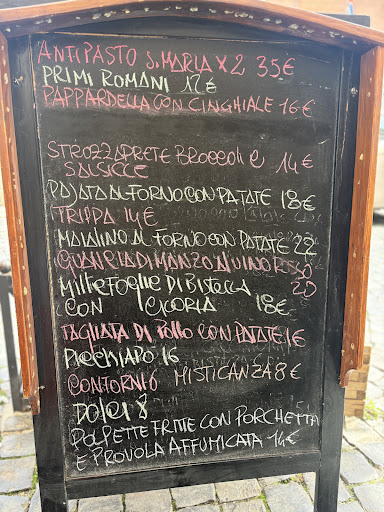 ANTIPASTO S.MARIA X 2 35€
PRIMI ROMANI 12€
PAPPARDELLA CON CINGHIALE 16€
STROZZAPRETE BROCCOLI E 14€
SALSICCE
PAJATA AL FORNO CON PATATE 18€
TRIPPA 14€
MAIALINO AL FORNO CON PATATE 22
GUANCIA DI MANZO AL VINO ROSSO
MILLEFOGLIE DI BISTECCA 20
CON CICORIA 18€
TAGLIATA DI POLLO CON PATATE 1€
PICCHIAPO 16
CONTORNI 6 MISTICANZA 8€
DOLCI 8
POLPETTE FRITTE CON PORCHETTA
E PROVOLA AFFUMICATA 14€